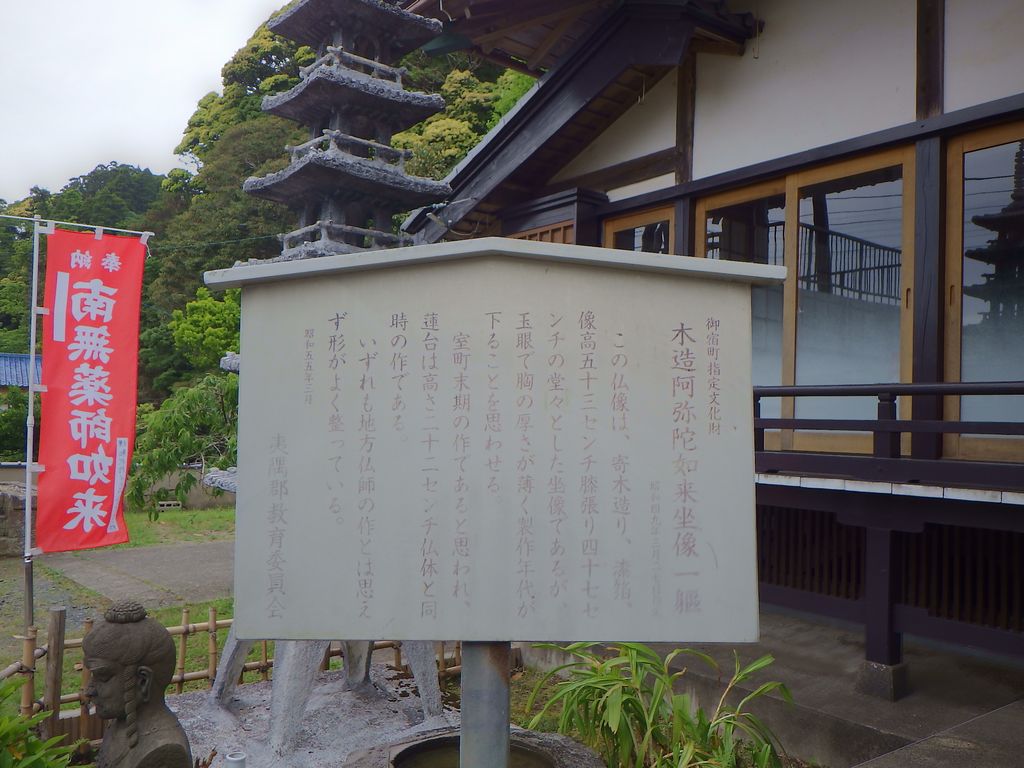 御宿町指定文化財
木造阿弥陀如来坐像一軀
この仏像は、寄木造り、漆箔、
像高五十三センチ膝張り四十七セ
ンチの堂々とした坐像であるが、
玉眼で胸の厚さが薄く製作年代が
下ることを思わせる。
室町末期の作であると思われ、
蓮台は高さ二十二センチ仏体と同
時の作である。
いずれも地方仏師の作とは思え
ず形がよく整っている。
昭和五五年三月
夷隅郡教育委員会
奉納
南無薬師如来